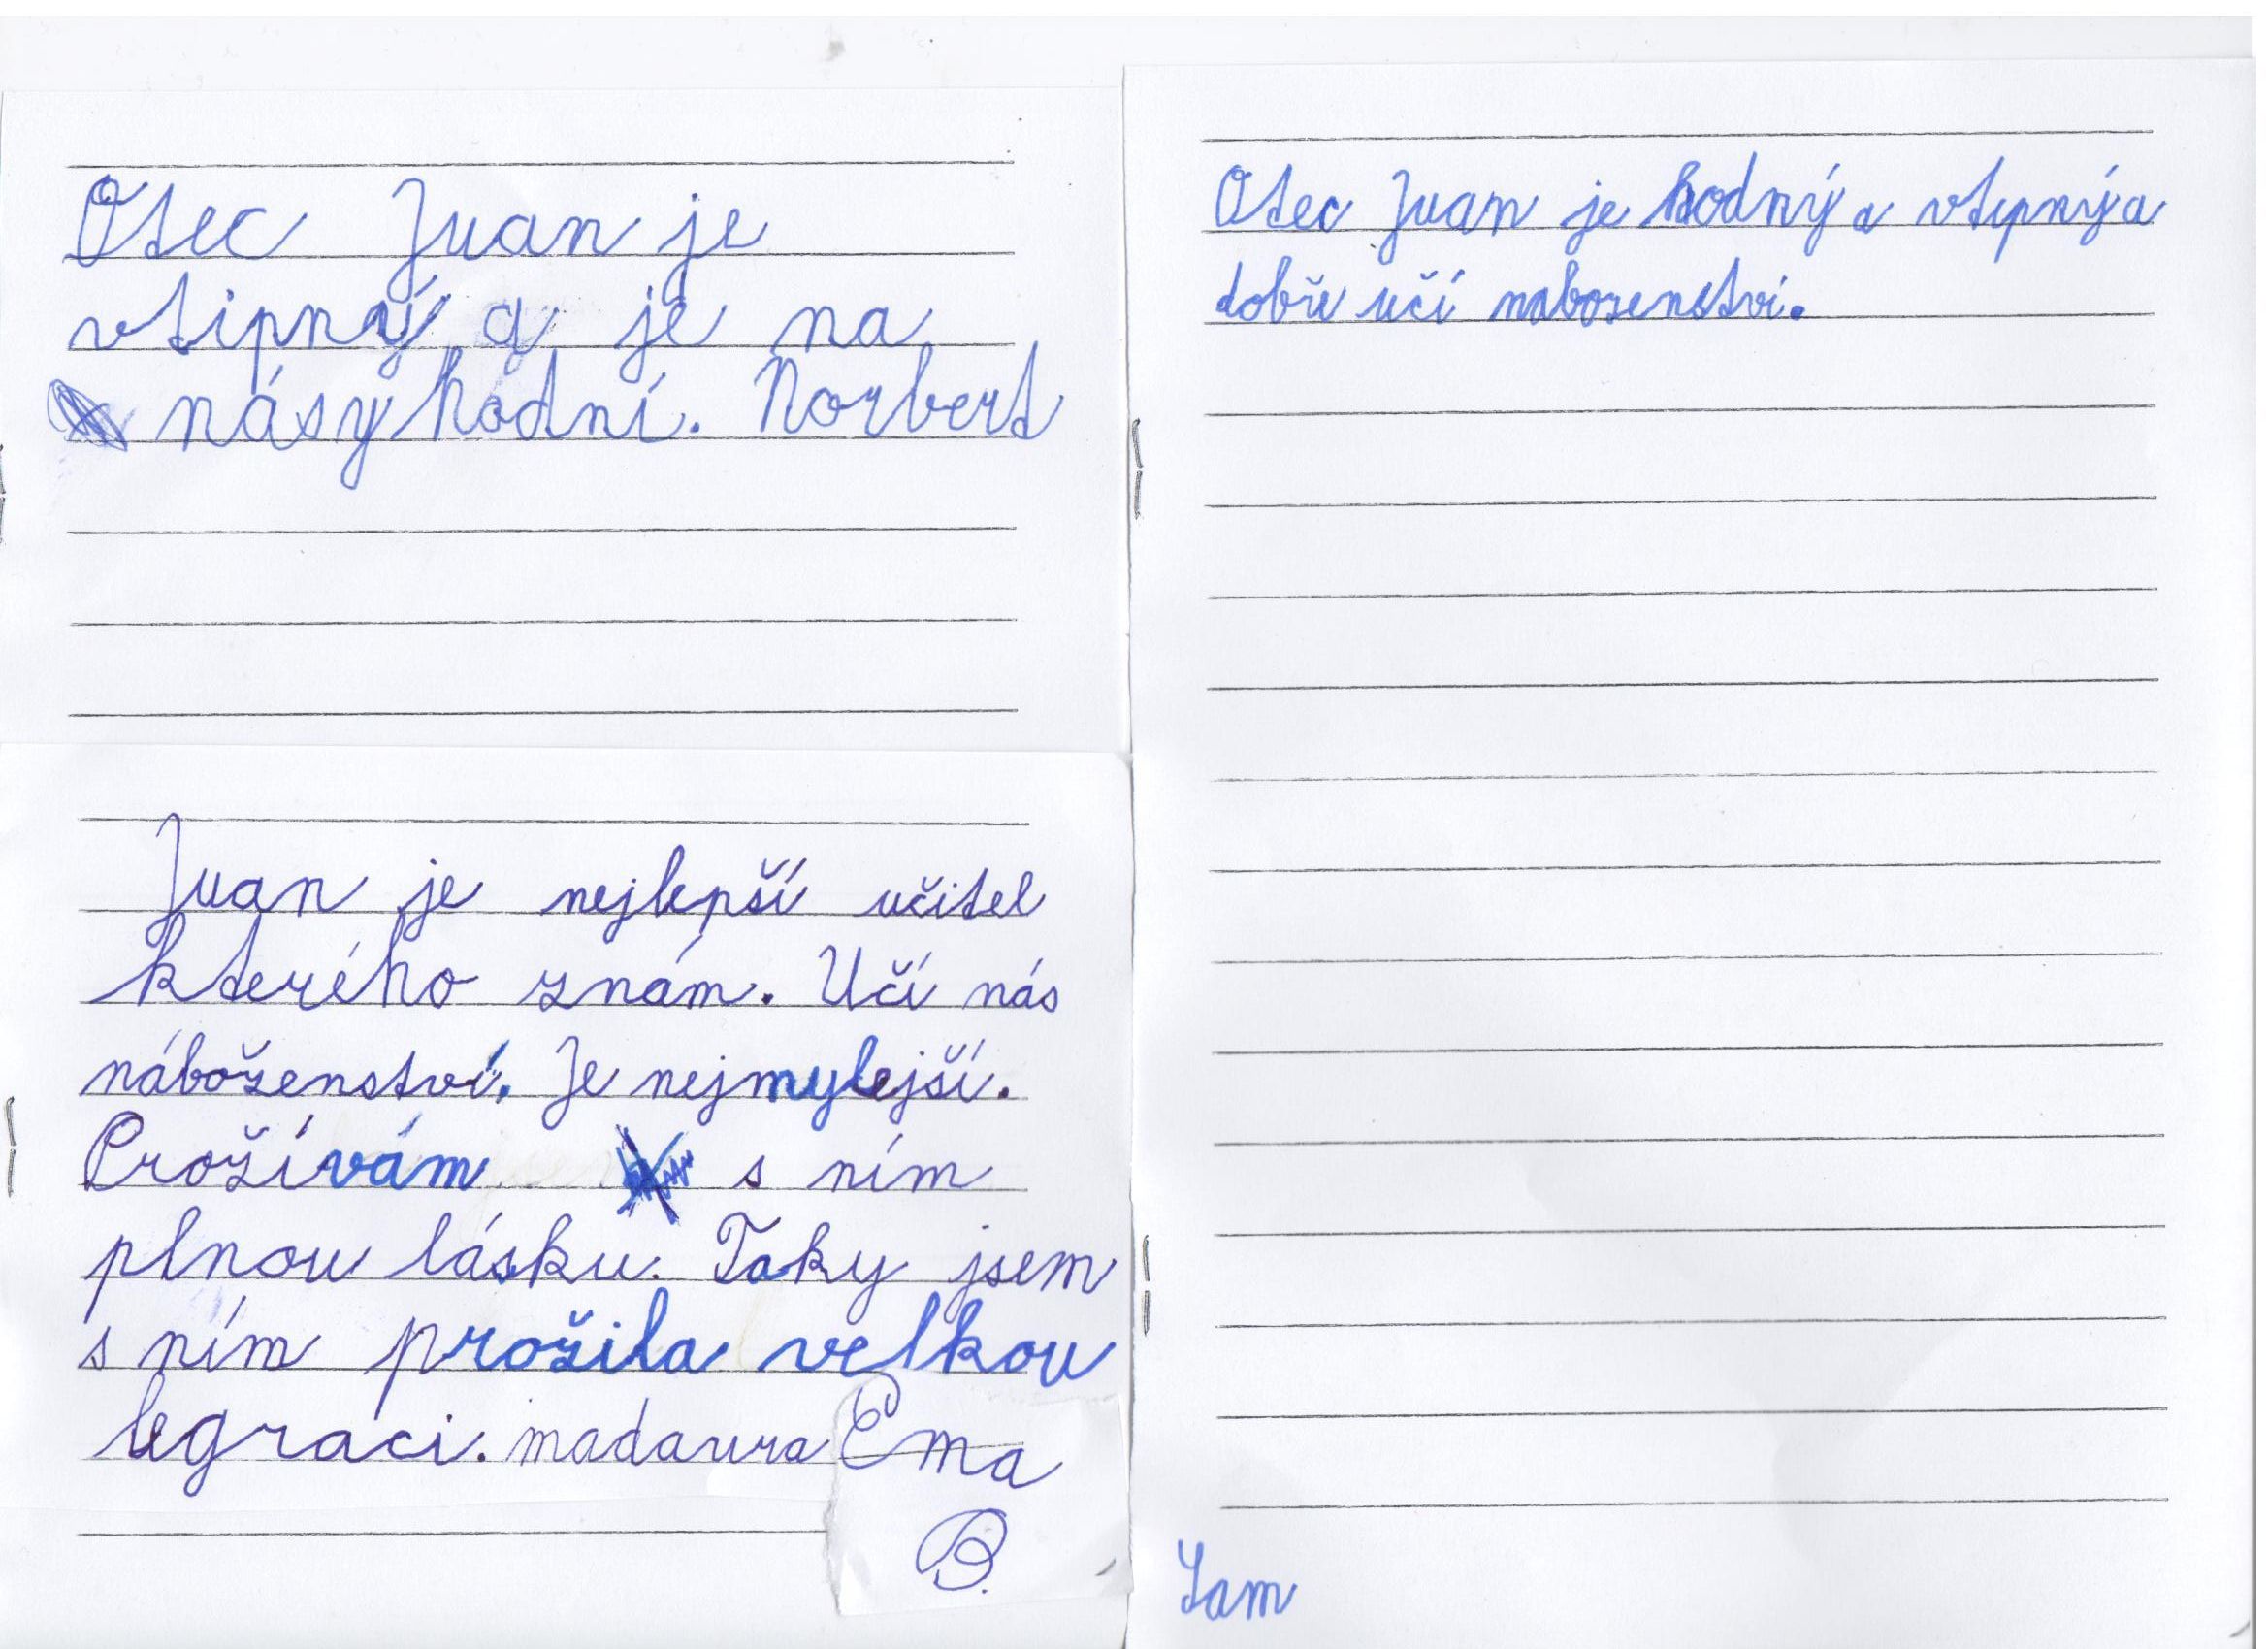 Otec Juan je
vtipný a je na
násy hodní. Norbert
Juan je nejlepší učitel
kterého znám. Učí nás
náboženství. Je nejmylejší.
Prožívám s ním
plnou lásku. Taky jsem
s ním prožila velkou
legraci. madaura Ema
B.
Otec Juan je hodný a vtipný a
dobře učí nabozenstvi.
Sam